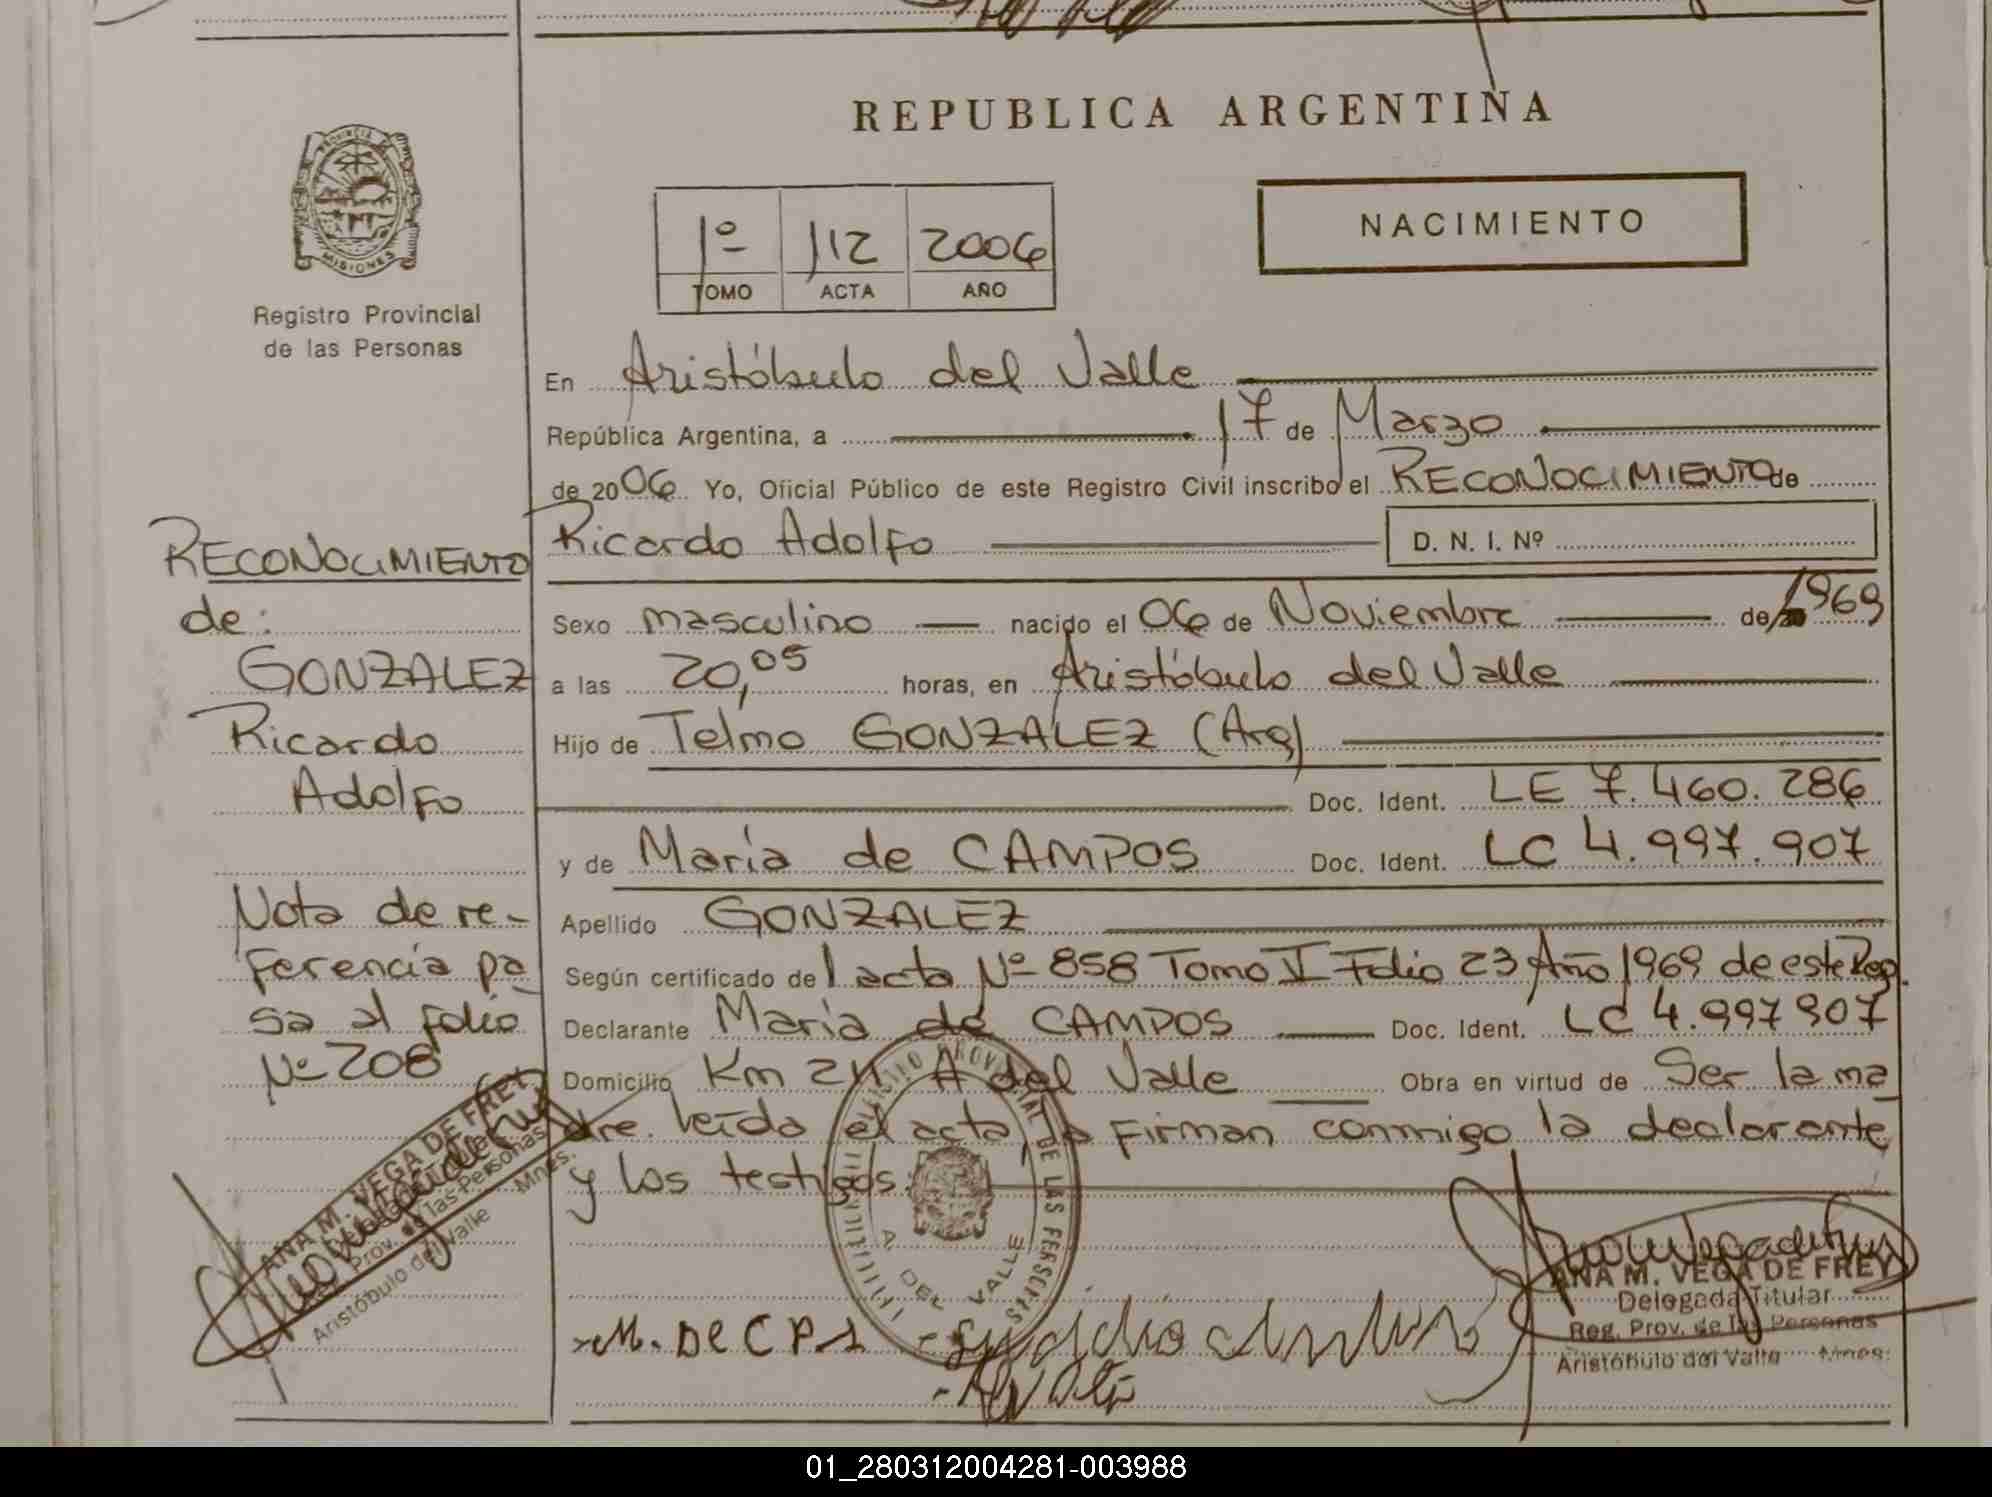 REPUBLICA ARGENTINA
PROVINCIA
MISIONES
Registro Provincial
de las Personas
1º 112 2006
TOMO ACTA AÑO
NACIMIENTO
En Aristóbulo del Valle
República Argentina, a 17 de Marzo
de 2006 Yo, Oficial Público de este Registro Civil inscribo el RECONOCIMIENTO de
Ricardo Adolfo D. N. I. Nº
Sexo masculino nacido el 06 de Noviembre de 1969
a las 20,05 horas, en Aristóbulo del Valle
Hijo de Telmo GONZALEZ (Arg)
Doc. Ident. LE 7.460.286
y de María de CAMPOS Doc. Ident. LC 4.997.907
Apellido GONZALEZ
Según certificado de l acta Nº 858 Tomo V Folio 23 Año 1969 de este Reg.
Declarante María de CAMPOS Doc. Ident. LC 4.997 907
Domicilio Km 211 A del Valle Obra en virtud de Ser la ma
dre. leída el acta, la Firman conmigo la declarante
y los testigos
RECONOCIMIENTO
de:
GONZALEZ
Ricardo
Adolfo
Nota de re-
ferencia pa
sa al folio
Nº 208
ANA M. VEGA DE FREY
Prov. de las Personas
Aristóbulo del Valle Mnes.
DE LAS PERSONAS
A. DEL VALLE
M. De CPS
ANA M. VEGA DE FREY
Delegada Titular
Reg. Prov. de las Personas
Aristóbulo del Valle Mnes.
01_280312004281-003988